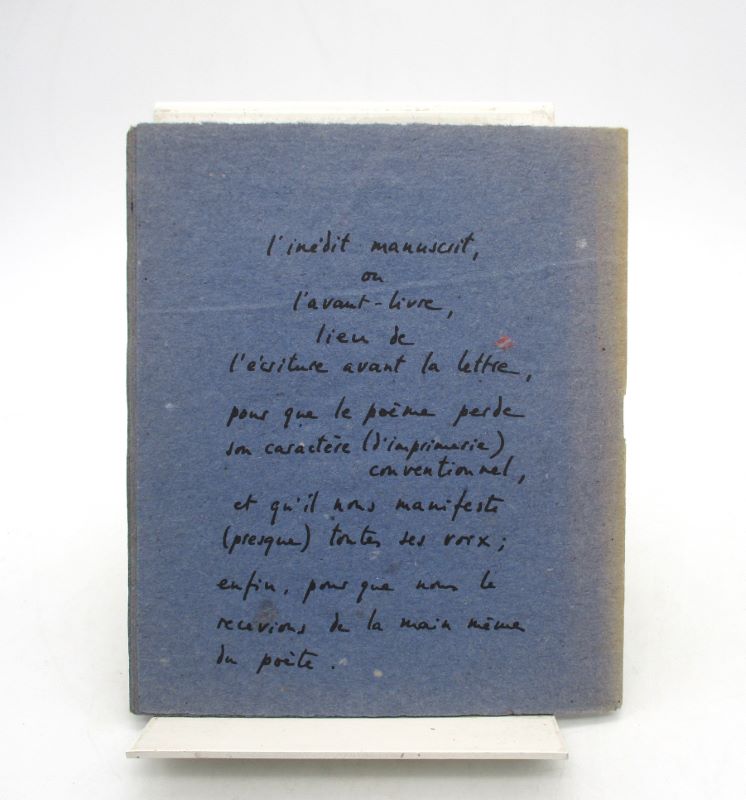 l'inédit manuscrit,
ou
l'avant-livre,
lieu de
l'écriture avant la lettre,
pour que le poème perde
son caractère (d'imprimerie)
conventionnel,
et qu'il nous manifeste
(presque) toutes ses voix;
enfin, pour que nous le
recevions de la main même
du poète.